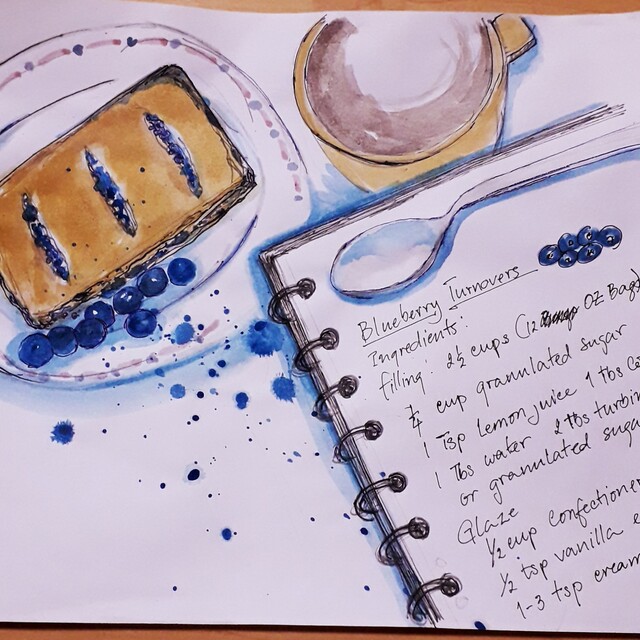 Blueberry Turnovers
Ingredients:
filling: 2½ cups (12 OZ Bags
¼ cup granulated sugar
1 Tsp Lemon juice 1 tbs
1 Tbs water 2 Tbs turbin
or granulated sugar
Glaze
½ cup confectioner
½ tsp vanilla e
1-3 tsp cream